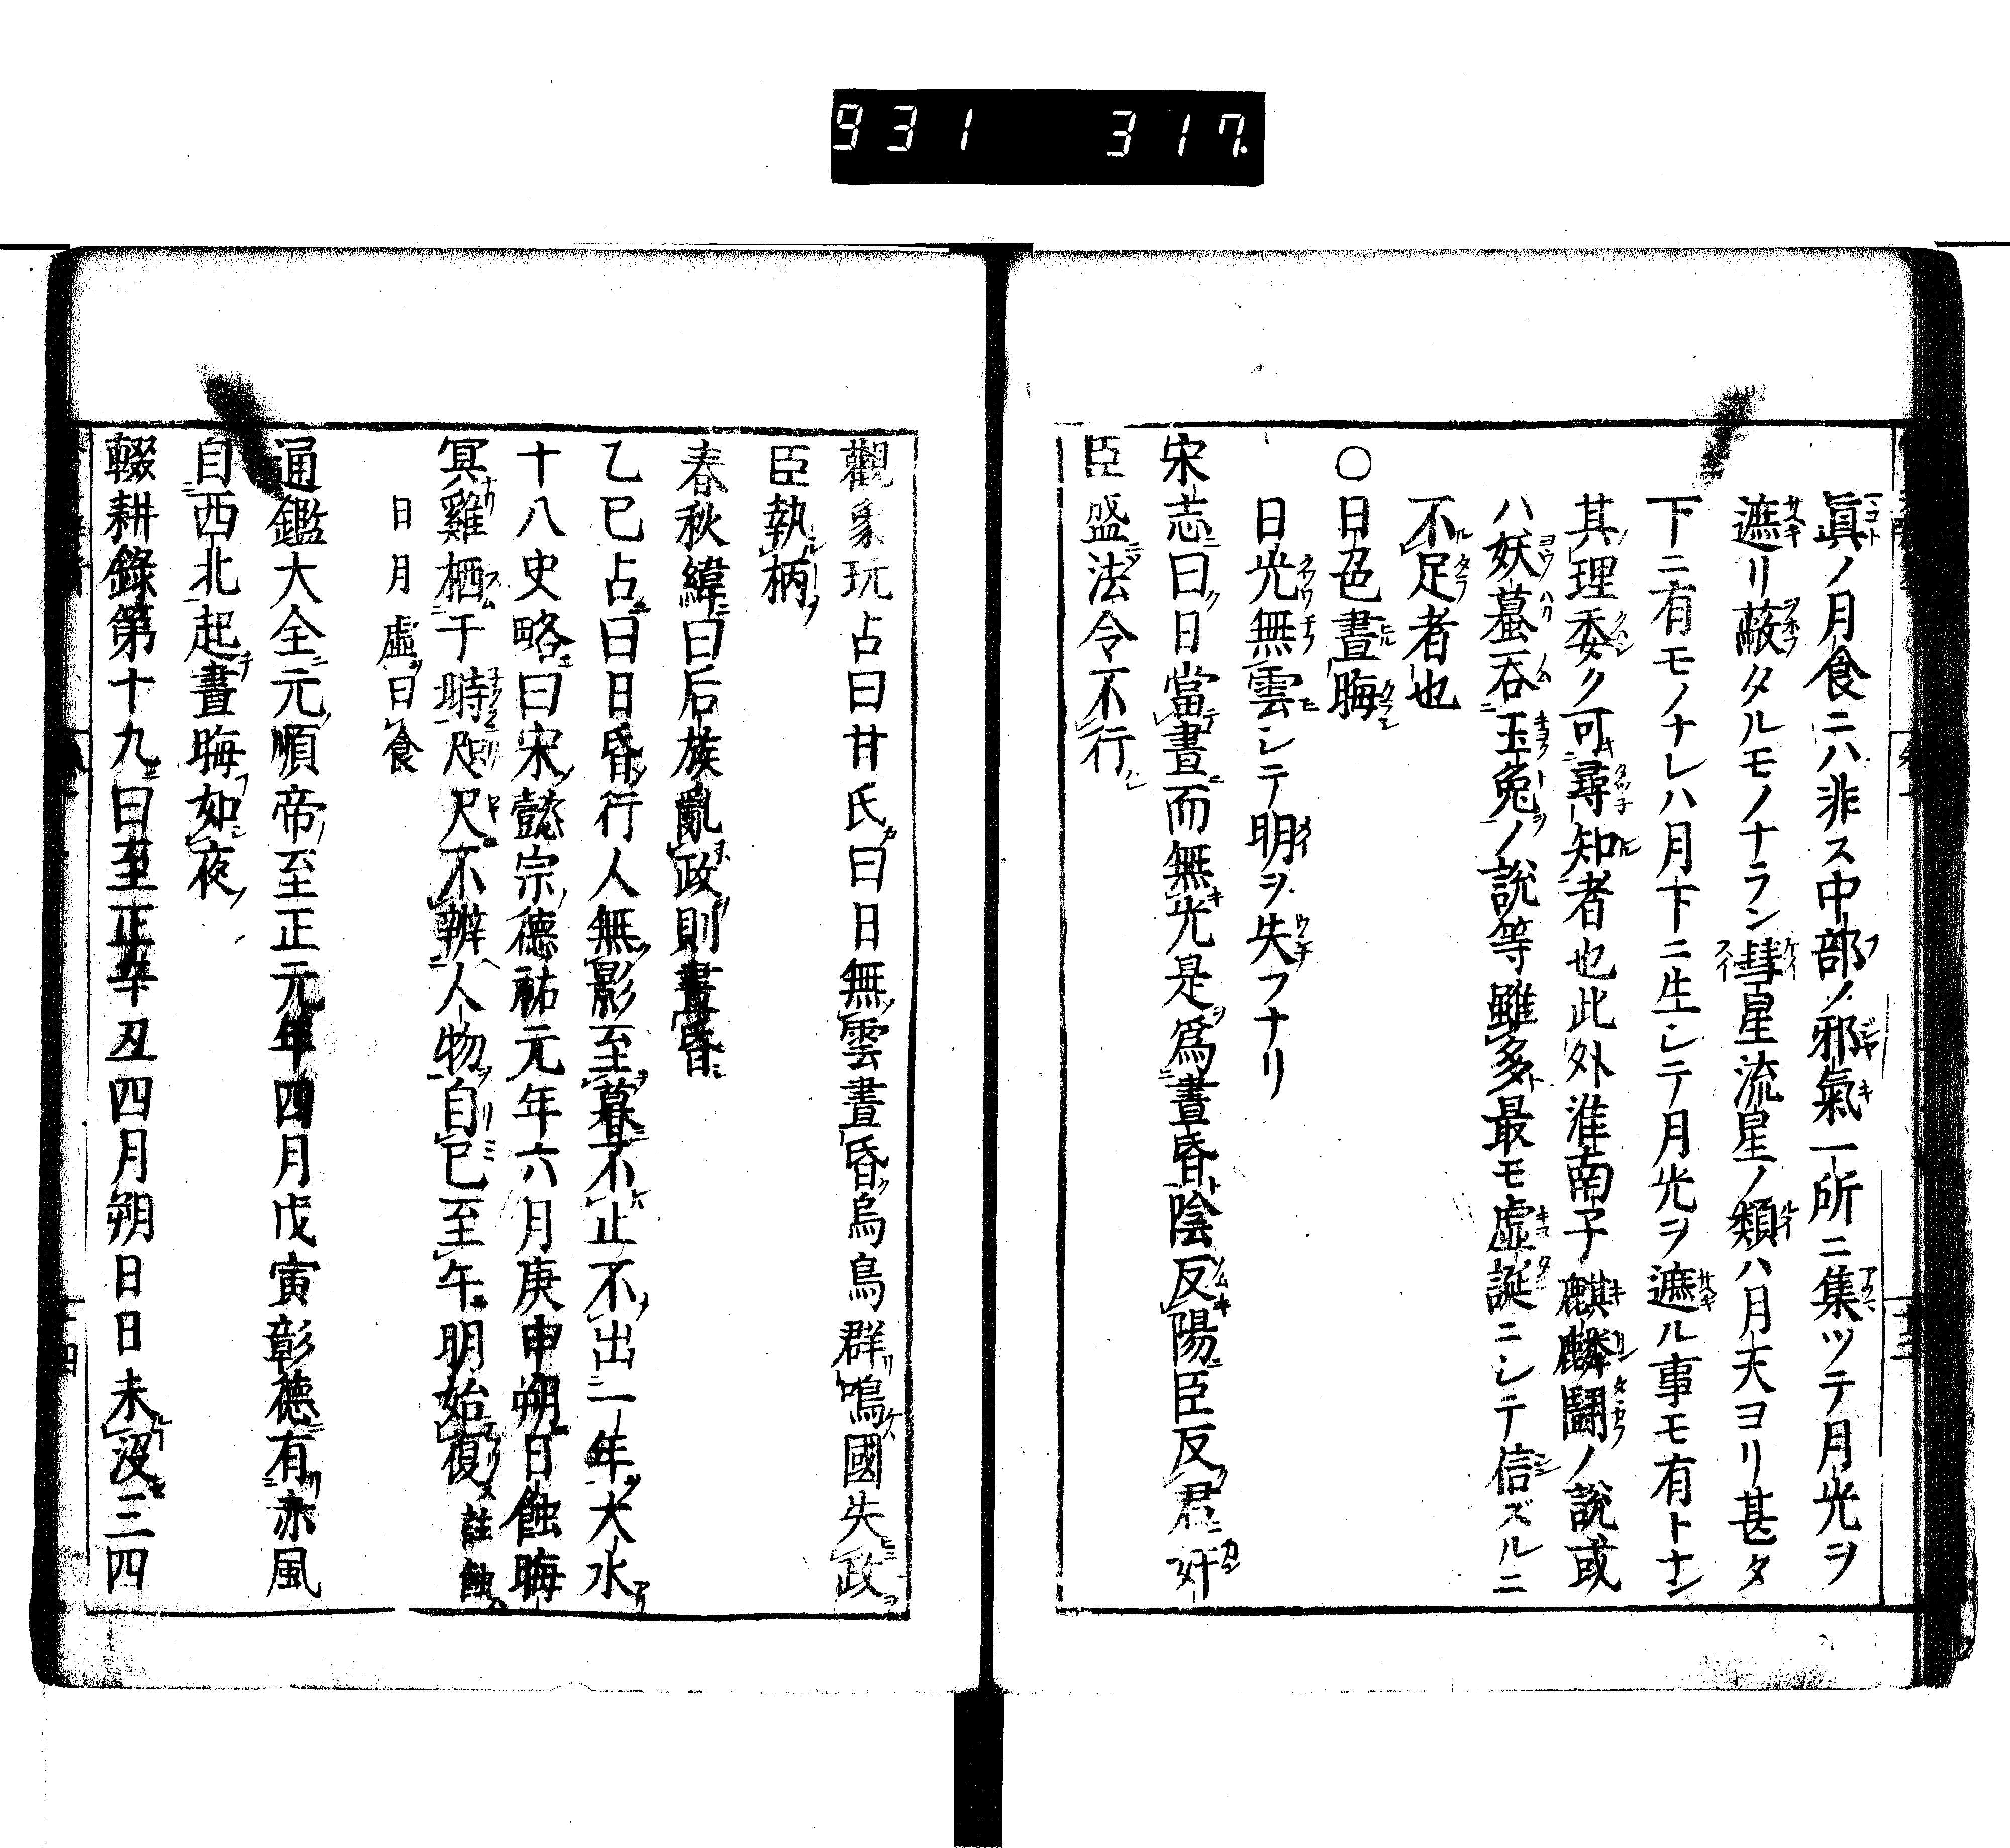 931 317
眞ノ月食ニハ非ス中部ノ邪氣一所ニ集ツテ月光ヲ
遮リ蔽タルモノナラン彗星流星ノ類ハ月天ヨリ甚タ
下ニ有モノナレハ月下ニ生シテ月光ヲ遮ル事モ有トナン
其理委ク可尋知者也此外淮南子麒麟鬪ノ說或
ハ妖蟇吞玉兔ノ說等雖多最モ虛誕ニシテ信ズルニ
不足者也
〇日色晝晦
日光無雲シテ明ヲ失フナリ
宋志曰日當晝而無光是爲晝昏陰反陽臣反君奸
臣盛法令不行
觀象玩占曰甘氏曰日無雲晝昏烏鳥群鳴國失政
臣執柄
春秋緯曰后族亂政則晝昏
乙巳占曰日昏行人無影至暮不止不出一年大水
十八史略曰宋懿宗德祐元年六月庚申朔日蝕晦
冥雞栖于塒咫尺不辨人物自巳至午明始復註蝕
日月虛曰食
通鑑大全元順帝至正元年四月戊寅彰德有赤風
自西北起晝晦如夜
輟耕錄第十九曰至正辛丑四月朔日日未没三四